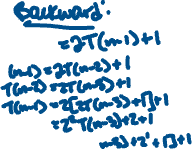 Backward:
=2T(n-1)+1
(n-1)=2T(n-2)+1
T(n-2)=2T(n-3)+1
T(n-1)=2[2T(n-3)+1]+1
=2²T(n-3)+2+1
n-3)+2¹+1]+1